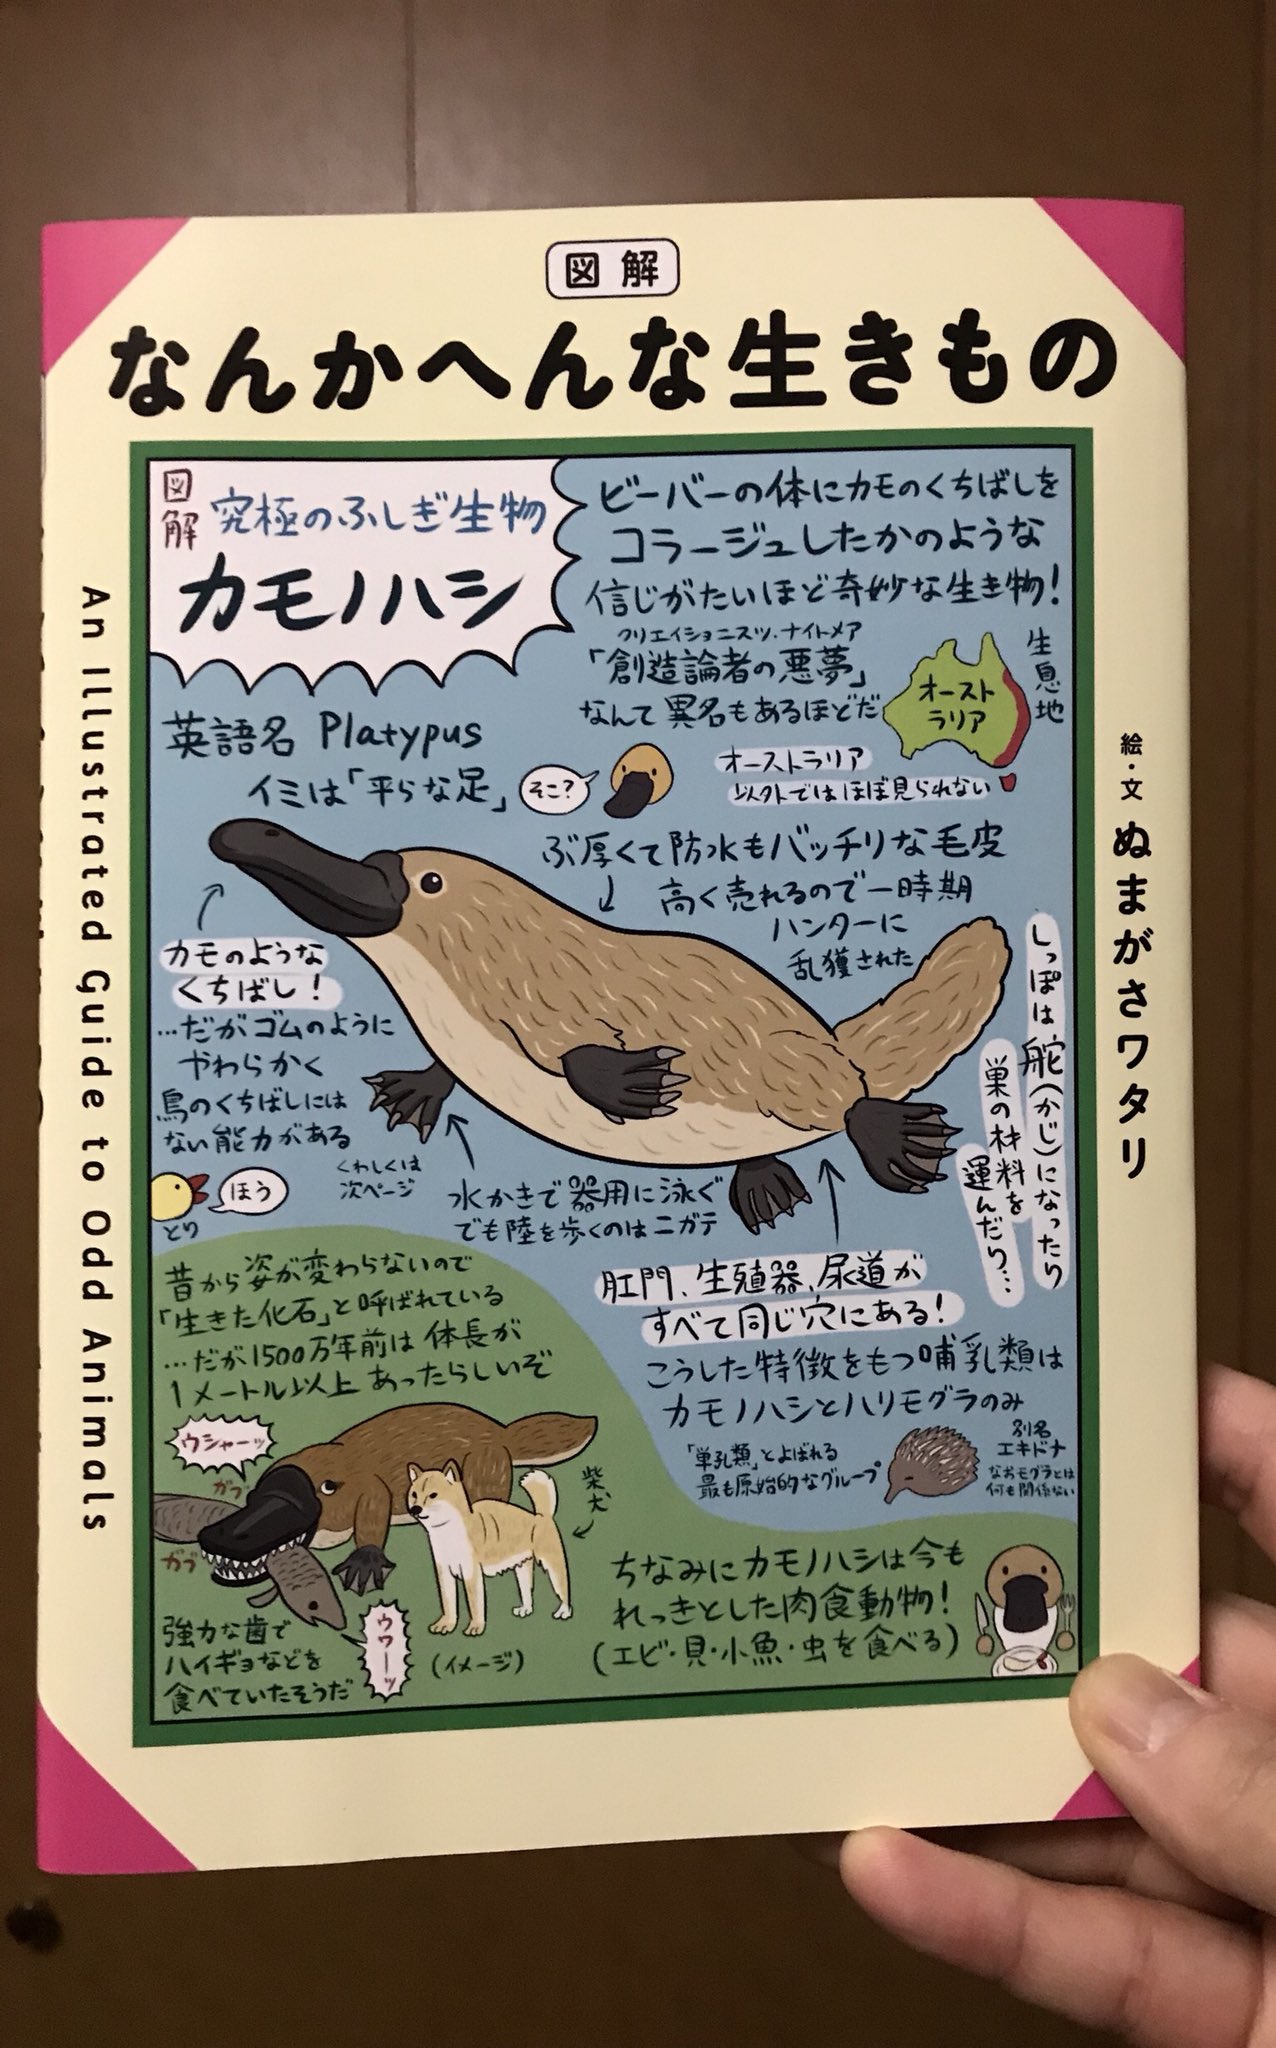 図解
なんかへんな生きもの
An Illustrated Guide to Odd Animals
絵・文 ぬまがさワタリ
図解
究極のふしぎ生物
カモノハシ
ビーバーの体にカモのくちばしを
コラージュしたかのような
信じがたいほど奇妙な生き物!
クリエイショニスツ・ナイトメア
「創造論者の悪夢」
なんて異名もあるほどだ
生息地
オースト
ラリア
オーストラリア
以外ではほぼ見られない
英語名 Platypus
イミは「平らな足」
そこ?
ぶ厚くて防水もバッチリな毛皮
高く売れるので一時期
ハンターに
乱獲された
カモのような
くちばし!
…だがゴムのように
やわらかく
鳥のくちばしには
ない能力がある
くわしくは
次ページ
ほう
とり
水かきで器用に泳ぐ
でも陸を歩くのはニガテ
しっぽは舵(かじ)になったり
巣の材料を
運んだり…
肛門、生殖器、尿道が
すべて同じ穴にある!
こうした特徴をもつ哺乳類は
カモノハシとハリモグラのみ
「単孔類」とよばれる
最も原始的なグループ
別名
エキドナ
なおモグラとは
何も関係ない
昔から姿が変わらないので
「生きた化石」と呼ばれている
…だが1500万年前は体長が
1メートル以上あったらしいぞ
ウシャーッ
ガブ
ガブ
柴犬
強力な歯で
ハイギョなどを
食べていたそうだ
ウワーッ
(イメージ)
ちなみにカモノハシは今も
れっきとした肉食動物!
(エビ・貝・小魚・虫を食べる)